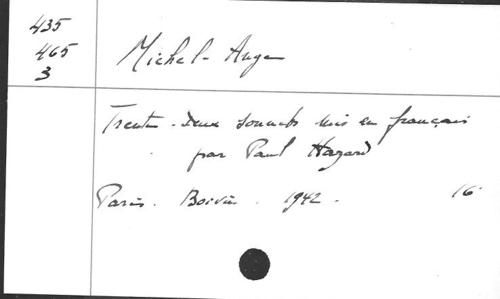 435
465
3
Michel-Ange
Trente-Deux sonnets mis en français
par Paul Hazard
Paris. Boivin. 1942. 16°